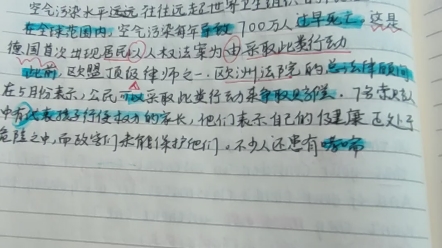 空气污染水平远远 往往远超世界卫生组织的
在全球范围内，空气污染每年导致 700万人过早死亡。这是
德国首次出现居民以人权法案为由采取此类行动
此前，欧盟顶级律师之一、欧洲法院的总法律顾问
在5月份表示，公民可以采取此类行动来争取
中有代表孩子行使权力的家长，他们表示自己的健康正处于
危险之中，而政客们未能保护他们。不少人还患有哮喘